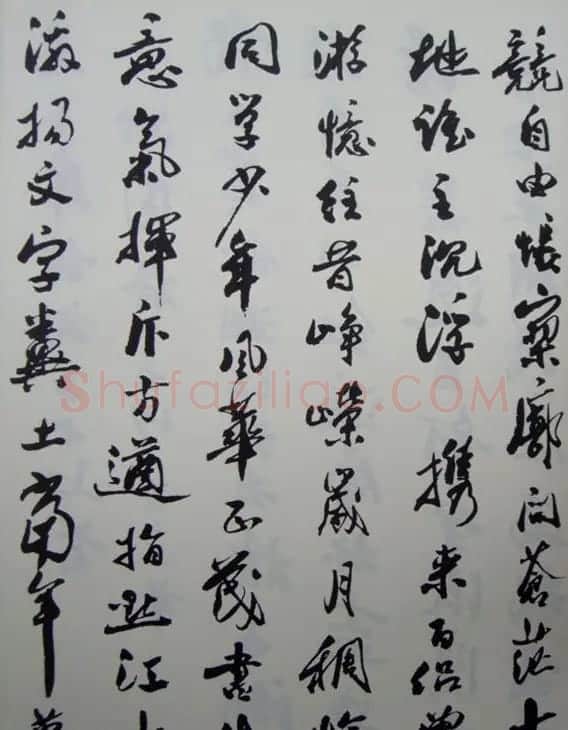 競自由悵寥廓问蒼茫大
地誰主沉浮 携来百侣曾
游憶往昔峥嶸歲月稠恰
同学少年風華正茂書
意氣揮斥方遒指點江
激揚文字糞土當年
Shufaziliao.COM